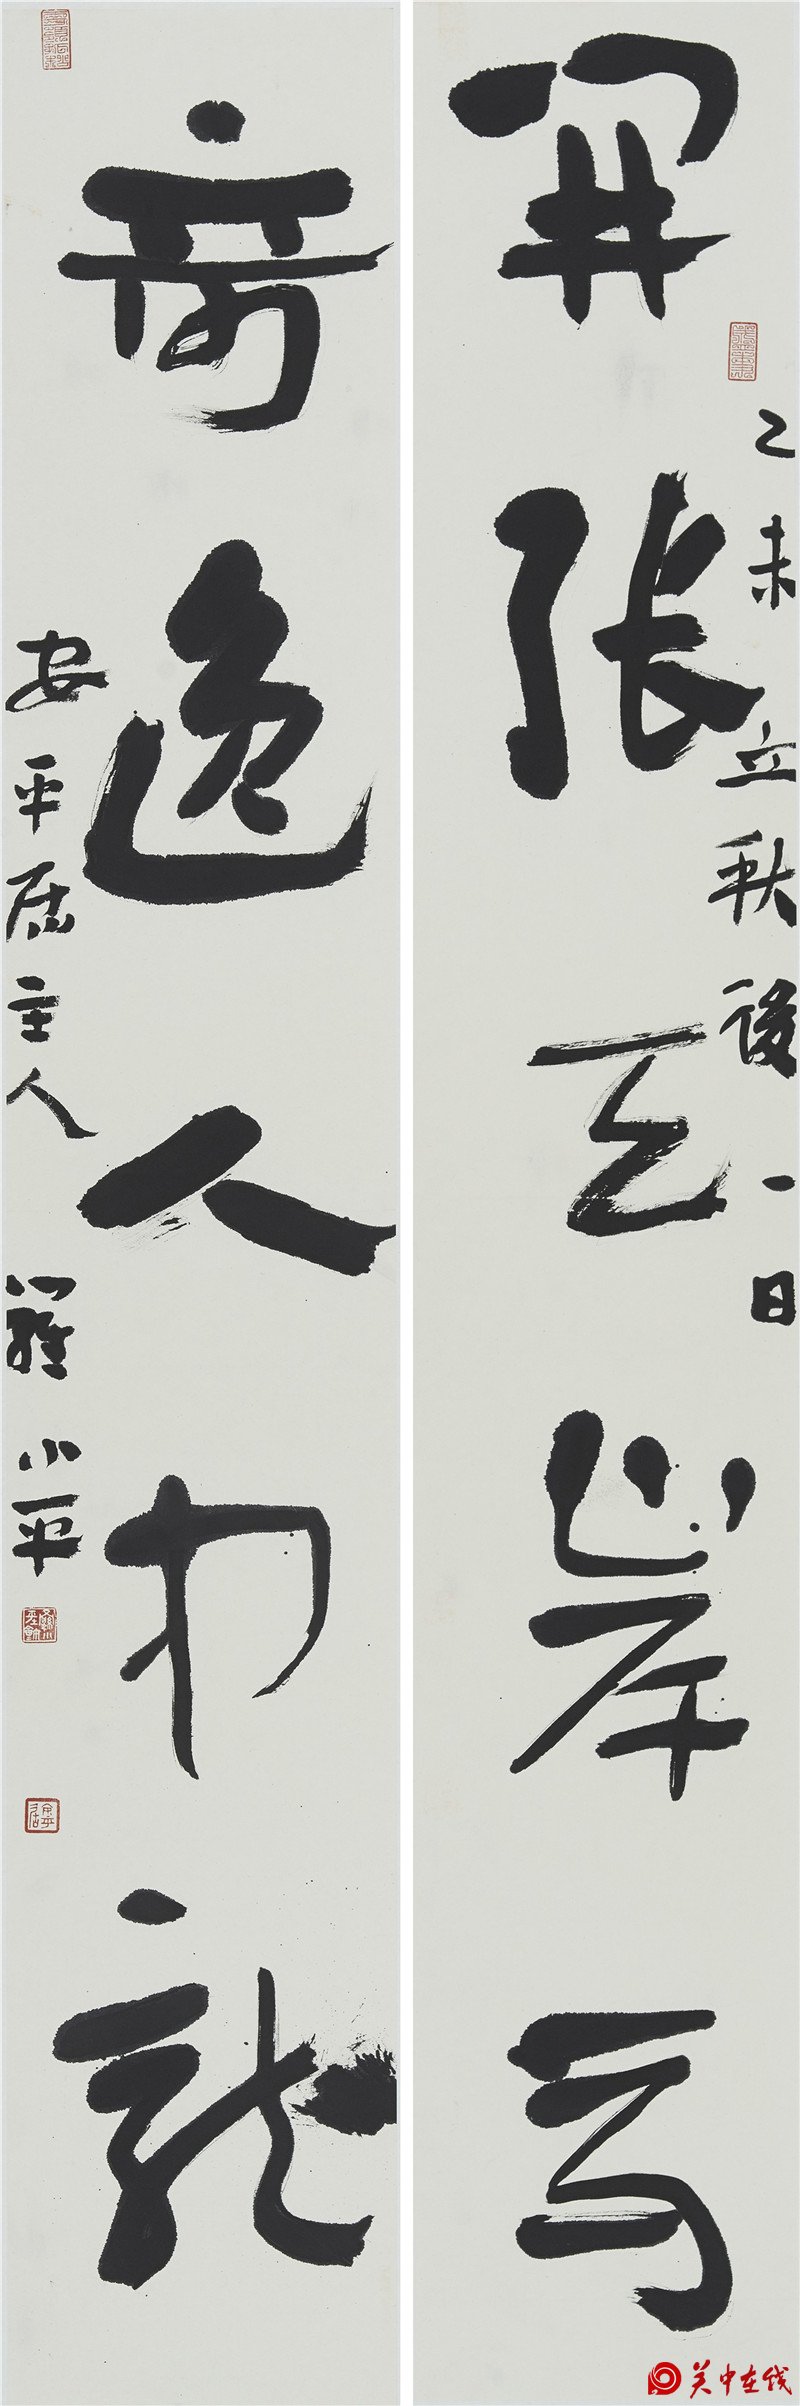 開張天岸馬
乙未立秋後一日
竒逸人中龍
安平居主人羅小平
关中在线